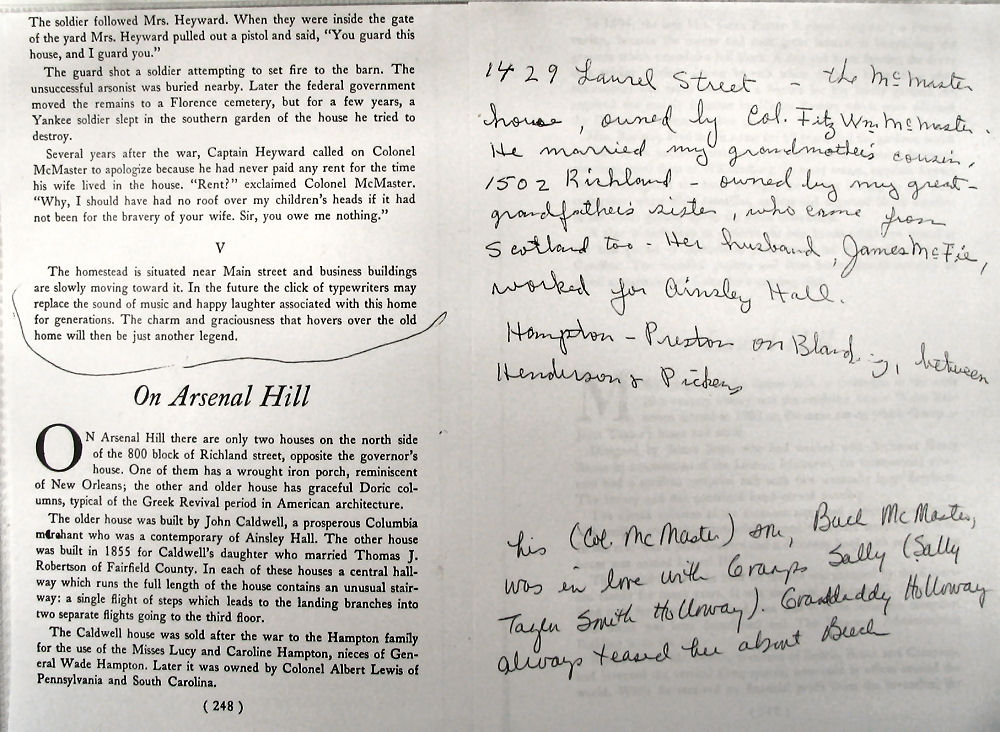 The soldier followed Mrs. Heyward. When they were inside the gate
of the yard Mrs. Heyward pulled out a pistol and said, “You guard this
house, and I guard you.”
The guard shot a soldier attempting to set fire to the barn. The
unsuccessful arsonist was buried nearby. Later the federal government
moved the remains to a Florence cemetery, but for a few years, a
Yankee soldier slept in the southern garden of the house he tried to
destroy.
Several years after the war, Captain Heyward called on Colonel
McMaster to apologize because he had never paid any rent for the time
his wife lived in the house. “Rent?” exclaimed Colonel McMaster.
“Why, I should have had no roof over my children's heads if it had
not been for the bravery of your wife. Sir, you owe me nothing.”
V
The homestead is situated near Main street and business buildings
are slowly moving toward it. In the future the click of typewriters may
replace the sound of music and happy laughter associated with this home
for generations. The charm and graciousness that hovers over the old
home will then be just another legend.
On Arsenal Hill
ON Arsenal Hill there are only two houses on the north side
of the 800 block of Richland street, opposite the governor's
house. One of them has a wrought iron porch, reminiscent
of New Orleans; the other and older house has graceful Doric col-
umns, typical of the Greek Revival period in American architecture.
The older house was built by John Caldwell, a prosperous Columbia
merchant who was a contemporary of Ainsley Hall. The other house
was built in 1855 for Caldwell's daughter who married Thomas J.
Robertson of Fairfield County. In each of these houses a central hall-
way which runs the full length of the house contains an unusual stair-
way: a single flight of steps which leads to the landing branches into
two separate flights going to the third floor.
The Caldwell house was sold after the war to the Hampton family
for the use of the Misses Lucy and Caroline Hampton, nieces of Gen-
eral Wade Hampton. Later it was owned by Colonel Albert Lewis of
Pennsylvania and South Carolina.
( 248 )
1429 Laurel Street - the McMaster
house, owned by Col. Fitz Wm. McMaster.
He married my grandmother's cousin.
1502 Richland - owned by my great-
grandfather's sister, who came from
Scotland too - Her husband, James McFie,
worked for Ainsley Hall.
Hampton - Preston on Blanding, between
Henderson & Pickens
his (Col. McMaster) son, Buch McMaster,
was in love with Gramps Sally (Sally
Taylor Smith Holloway). Granddaddy Holloway
always teased her about Buch